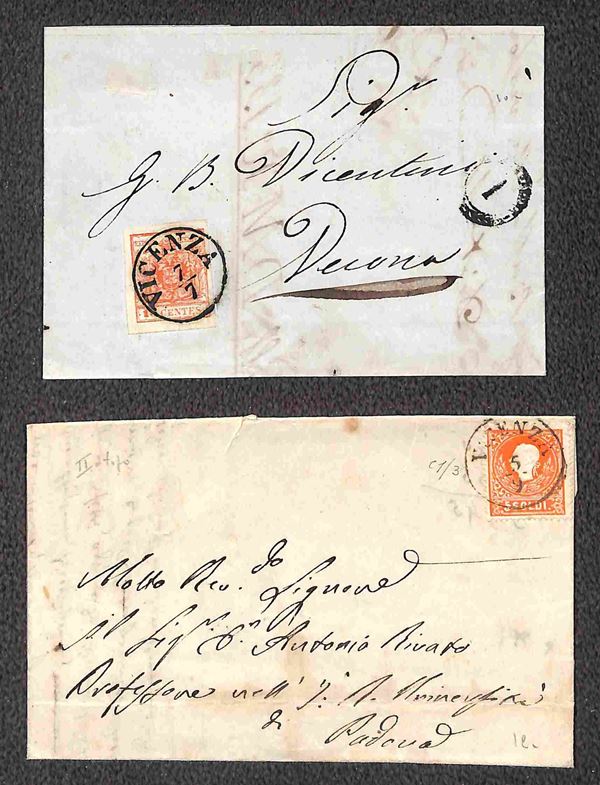 Sig.r
G. B. Vicentini
Verona
1
VICENZA
7/7
CENTES
II tipo
C1/3
VICENZA
5
5 SOLDI
Molto Rev.do Signore
Il Sig.r D.n Antonio Rivato
Professore nell' I. R. Università
di
Padova
12-